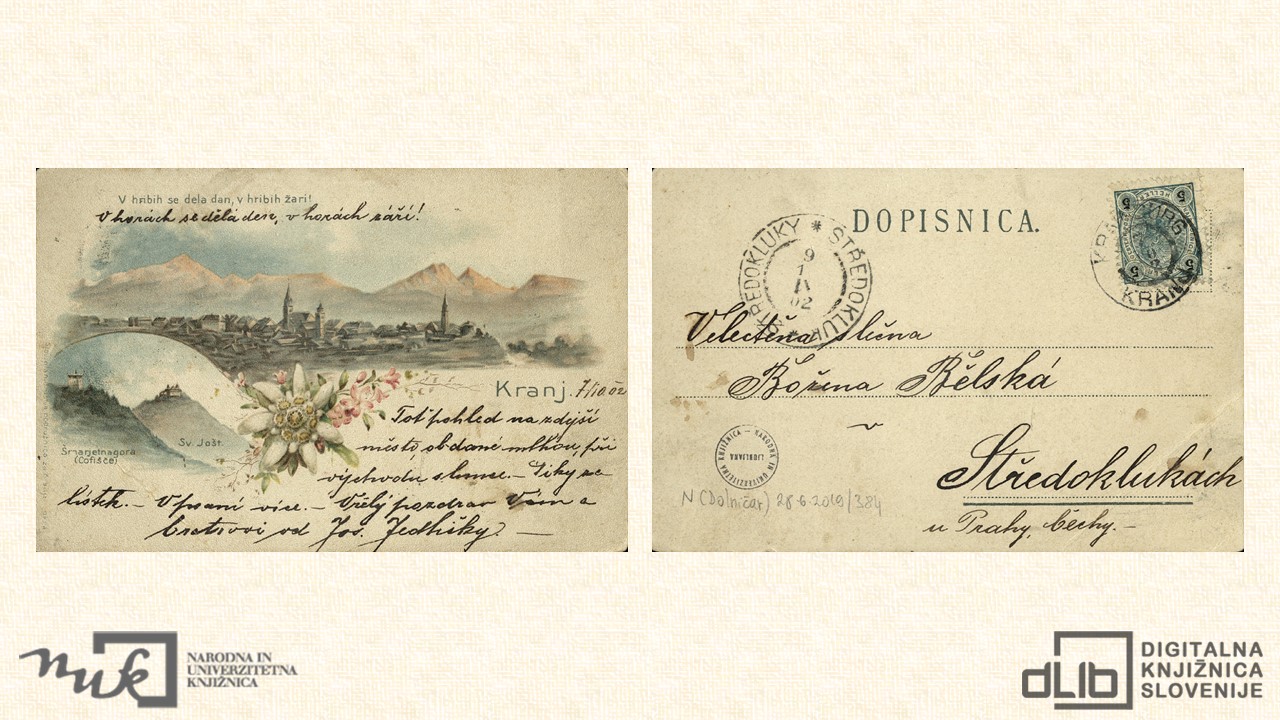 V hribih se dela dan, v hribih žari!
V horách se dělá den, v horách září!
Kranj. 7/10 02
Toť pohled na zdejší
město, obdané mlhou, při
východu slunce. – Díky za
lístek. – V psaní více. – Vřelý pozdrav Vám a
bratrovi od Jos. Jedličky. —
Šmarjetnagora
(Cofišče)
Sv. Jošt.
DOPISNICA.
STŘEDOKLUKY * STŘEDOKLUKY
9
02
KRAINBURG
KRANJ
5 5
5 5
Velectěná slečna
Božena Bělská
v
Středoklukách
u Prahy, Čechy. –
NARODNA IN UNIVERZITETNA KNJIŽNICA
LJUBLJANA
N (Dolničar) 28-6-2019/384
nuk
NARODNA IN
UNIVERZITETNA
KNJIŽNICA
dLib
DIGITALNA
KNJIŽNICA
SLOVENIJE